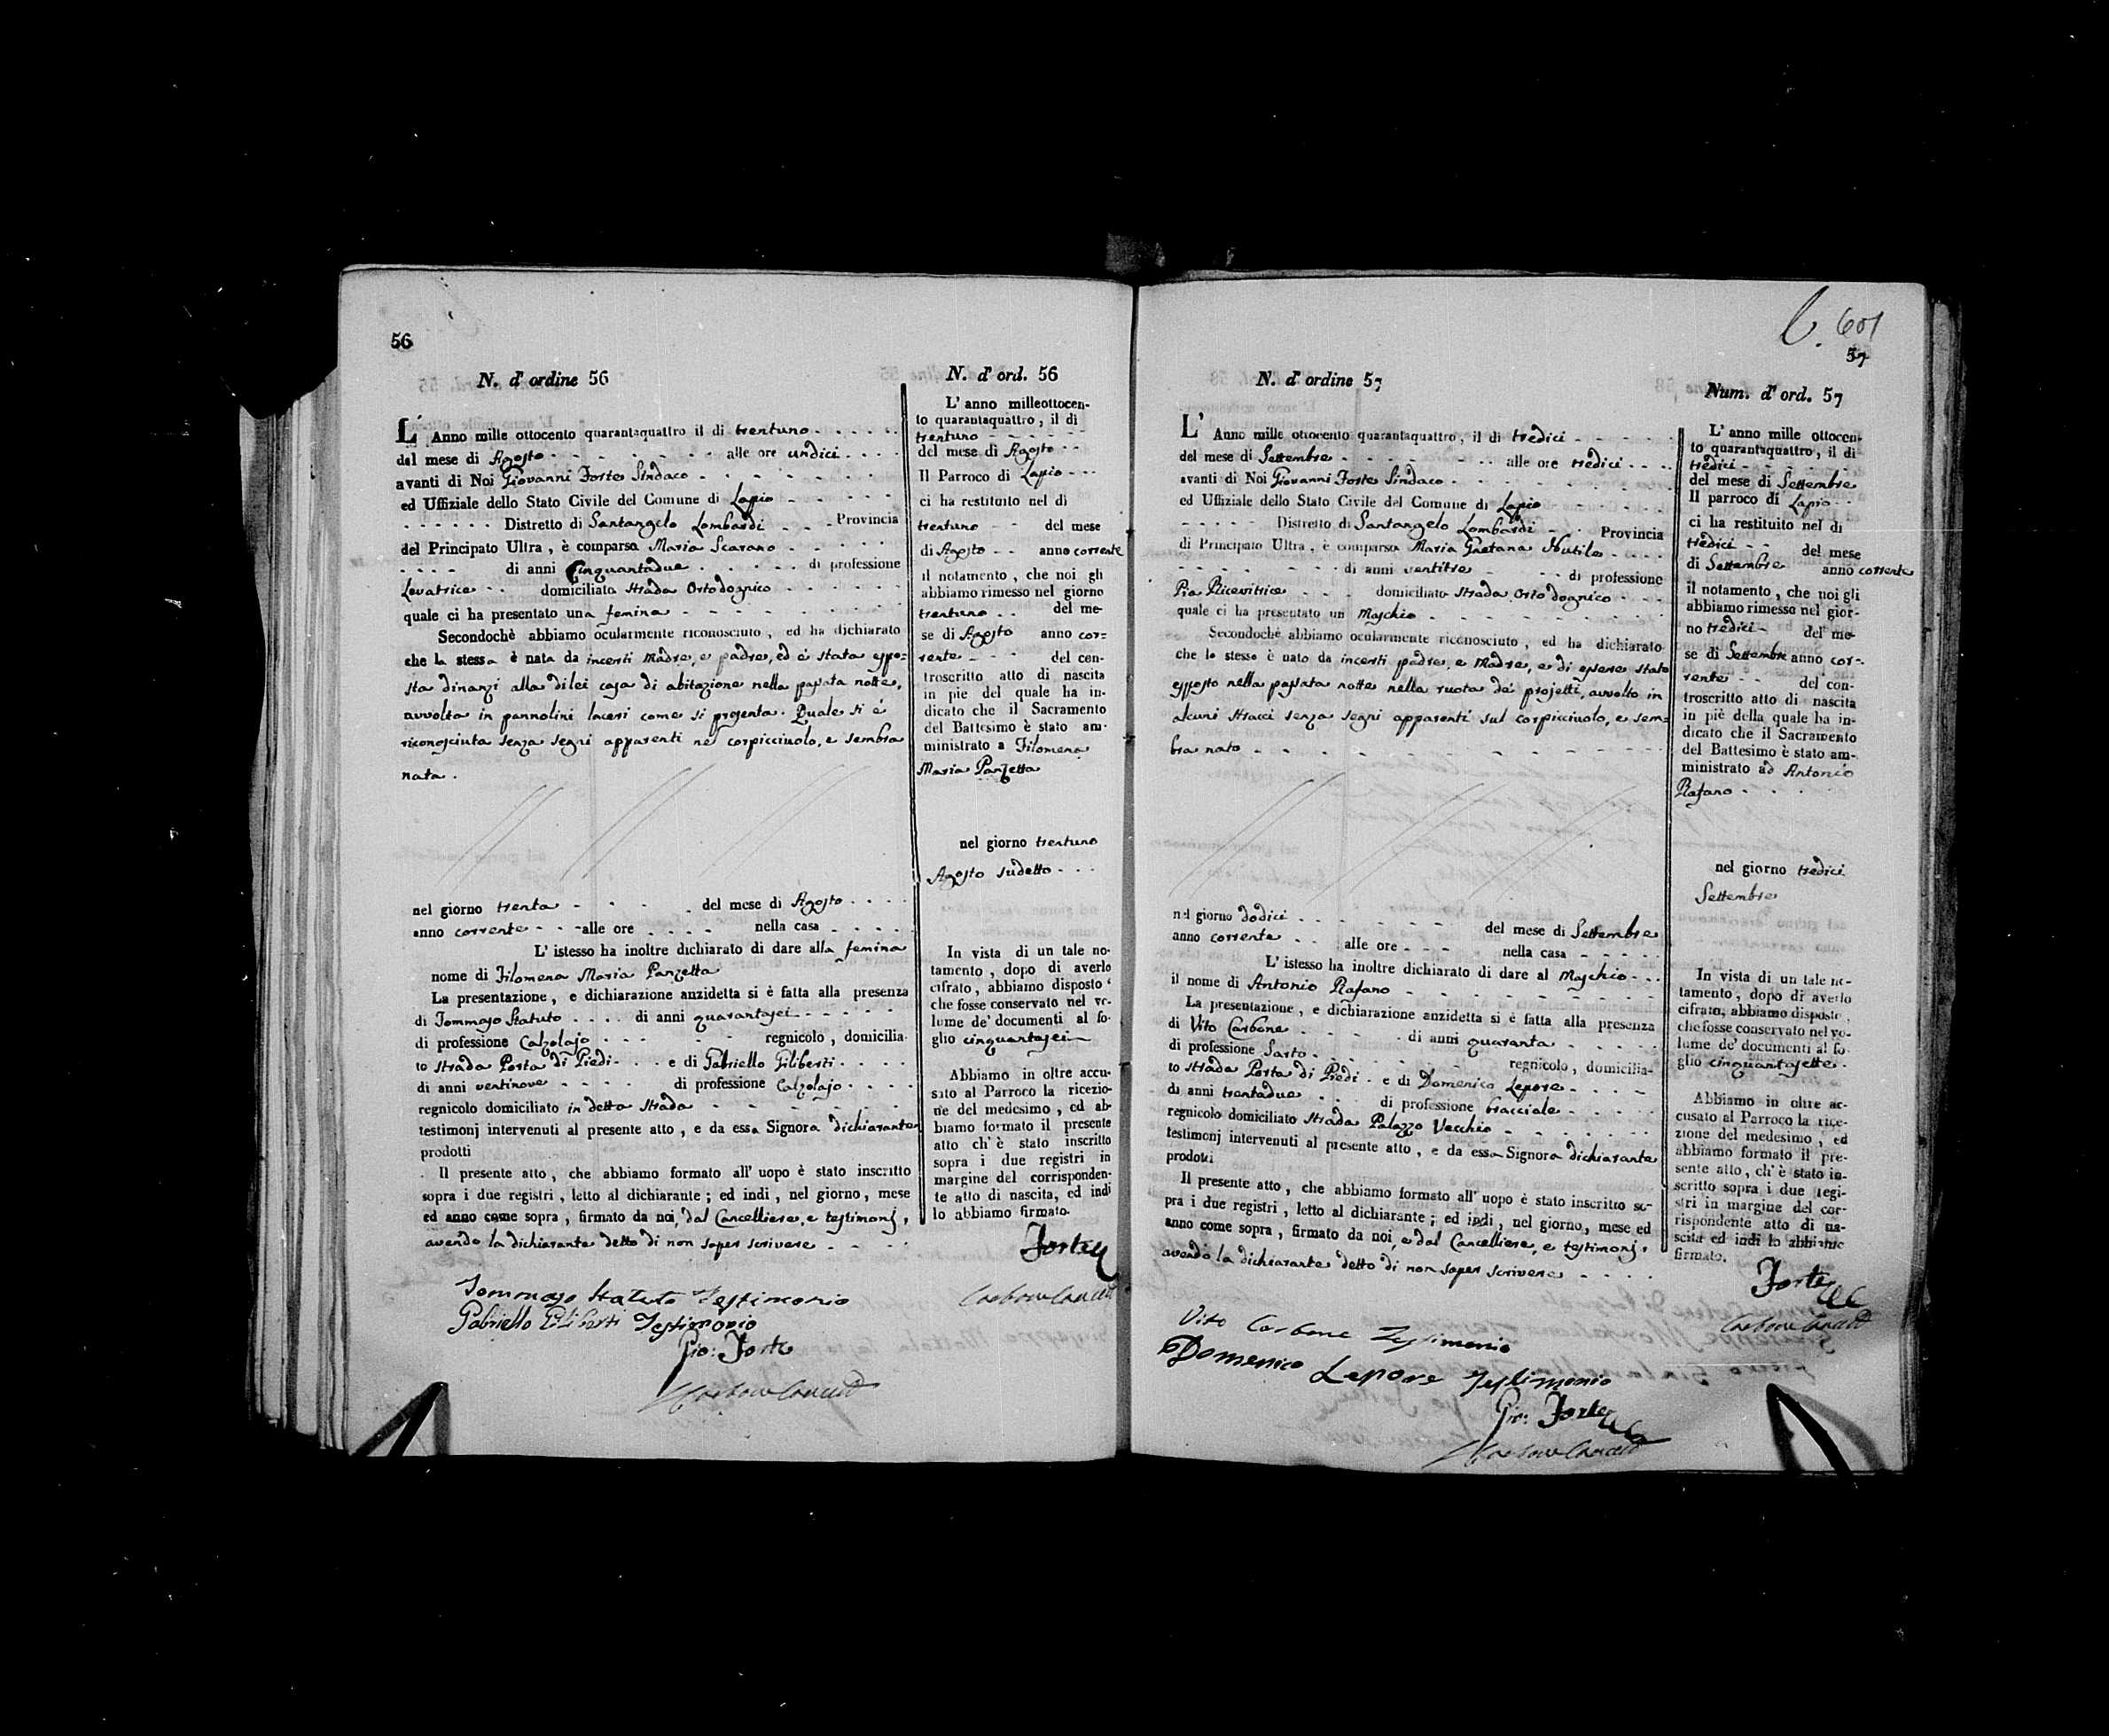 56
N. d' ordine 56
L' Anno mille ottocento quarantaquattro il di trentuno
del mese di Agosto alle ore undici
avanti di Noi Giovanni Forte Sindaco
ed Uffiziale dello Stato Civile del Comune di Lapio
Distretto di Santangelo Lombardi Provincia
del Principato Ultra, è comparsa Maria Scarano
di anni Cinquantadue di professione
Levatrice domiciliata Strada Ortodognico
quale ci ha presentato una femina
Secondochè abbiamo ocularmente riconosciuto, ed ha dichiarato
che la stessa è nata da incerti Madre, e padre, ed è stata espo=
sta dinanzi alla di lei casa di abitazione nella passata notte,
avvolta in pannolini laceri come si presenta. Quale si è
riconosciuta senza segni apparenti nel corpicciuolo, e sembra
nata.
nel giorno trenta del mese di Agosto
anno corrente alle ore nella casa
L' istesso ha inoltre dichiarato di dare alla femina
nome di Filomena Maria Panzetta
La presentazione, e dichiarazione anzidetta si è fatta alla presenza
di Tommaso Statuto di anni quarantasei
di professione Calzolajo regnicolo, domicilia-
to Strada Porta di Piedi e di Gabriello Giliberti
di anni ventinove di professione Calzolajo
regnicolo domiciliato in detta Strada
testimonj intervenuti al presente atto, e da essa Signora dichiarante
prodotti
Il presente atto, che abbiamo formato all' uopo è stato inscritto
sopra i due registri, letto al dichiarante; ed indi, nel giorno, mese
ed anno come sopra, firmato da noi, dal Cancelliere, e testimonj,
avendo la dichiarante detto di non saper scrivere
Tommaso Statuto Testimonio
Gabriello Giliberti Testimonio
Gio: Forte
N. d' ord. 56
L' anno milleottocen-
to quarantaquattro, il di
trentuno
del mese di Agosto
Il Parroco di Lapio
ci ha restituito nel di
trentuno del mese
di Agosto anno corrente
il notamento, che noi gli
abbiamo rimesso nel giorno
trentuno del me-
se di Agosto anno cor=
rente del con-
troscritto atto di nascita
in piè del quale ha in-
dicato che il Sacramento
del Battesimo è stato am-
ministrato a Filomena
Maria Panzetta
nel giorno trentuno
Agosto sudetto
In vista di un tale no-
tamento, dopo di averlo
cifrato, abbiamo disposto
che fosse conservato nel vo-
lume de' documenti al fo-
glio cinquantasei
Abbiamo in oltre accu-
sato al Parroco la ricezio-
ne del medesimo, ed ab-
biamo formato il presente
atto ch' è stato inscritto
sopra i due registri in
margine del corrisponden-
te atto di nascita, ed indi
lo abbiamo firmato.
Forte
C. 601
57
N. d' ordine 57
L' Anno mille ottocento quarantaquattro, il di tredici
del mese di Settembre alle ore tredici
avanti di Noi Giovanni Forte Sindaco
ed Uffiziale dello Stato Civile del Comune di Lapio
Distretto di Santangelo Lombardi Provincia
di Principato Ultra, è comparsa Maria Gaetana Nutile
di anni ventitre di professione
Pia Ricevitrice domiciliata Strada Ortodognico
quale ci ha presentato un Maschio
Secondochè abbiamo ocularmente riconosciuto, ed ha dichiarato
che lo stesso è nato da incerti padre, e Madre, e di essere stato
esposto nella passata notte nella ruota de' projetti, avvolto in
alcuni stracci senza segni apparenti sul corpicciuolo, e sem=
bra nato
nel giorno dodici del mese di Settembre
anno corrente alle ore nella casa
L' istesso ha inoltre dichiarato di dare al Maschio
il nome di Antonio Rafano
La presentazione, e dichiarazione anzidetta si è fatta alla presenza
di Vito Carbone di anni quaranta
di professione Sarto regnicolo, domicilia-
to Strada Porta di Piedi e di Domenico Lepore
di anni trentadue di professione bracciale
regnicolo domiciliato Strada Palazzo Vecchio
testimonj intervenuti al presente atto, e da essa Signora dichiarante
prodotti
Il presente atto, che abbiamo formato all' uopo è stato inscritto so-
pra i due registri, letto al dichiarante; ed indi, nel giorno, mese ed
anno come sopra, firmato da noi, e dal Cancelliere, e testimonj,
avendo la dichiarante detto di non saper scrivere
Vito Carbone Testimonio
Domenico Lepore Testimonio
Gio: Forte
Num. d' ord. 57
L' anno mille ottocen-
to quarantaquattro, il di
tredici
del mese di Settembre
Il parroco di Lapio
ci ha restituito nel di
tredici del mese
di Settembre anno corrente
il notamento, che noi gli
abbiamo rimesso nel gior-
no tredici del me-
se di Settembre anno cor=
rente del con-
troscritto atto di nascita
in piè della quale ha in-
dicato che il Sacramento
del Battesimo è stato am-
ministrato ad Antonio
Rafano
nel giorno tredici
Settembre
In vista di un tale no-
tamento, dopo di averlo
cifrato, abbiamo disposto,
che fosse conservato nel vo-
lume de' documenti al fo-
glio cinquantasette
Abbiamo in oltre ac-
cusato al Parroco la rice-
zione del medesimo, ed
abbiamo formato il pre-
sente atto, ch' è stato in-
scritto sopra i due regi-
stri in margine del cor-
rispondente atto di na-
scita ed indi lo abbiamo
firmato.
Forte